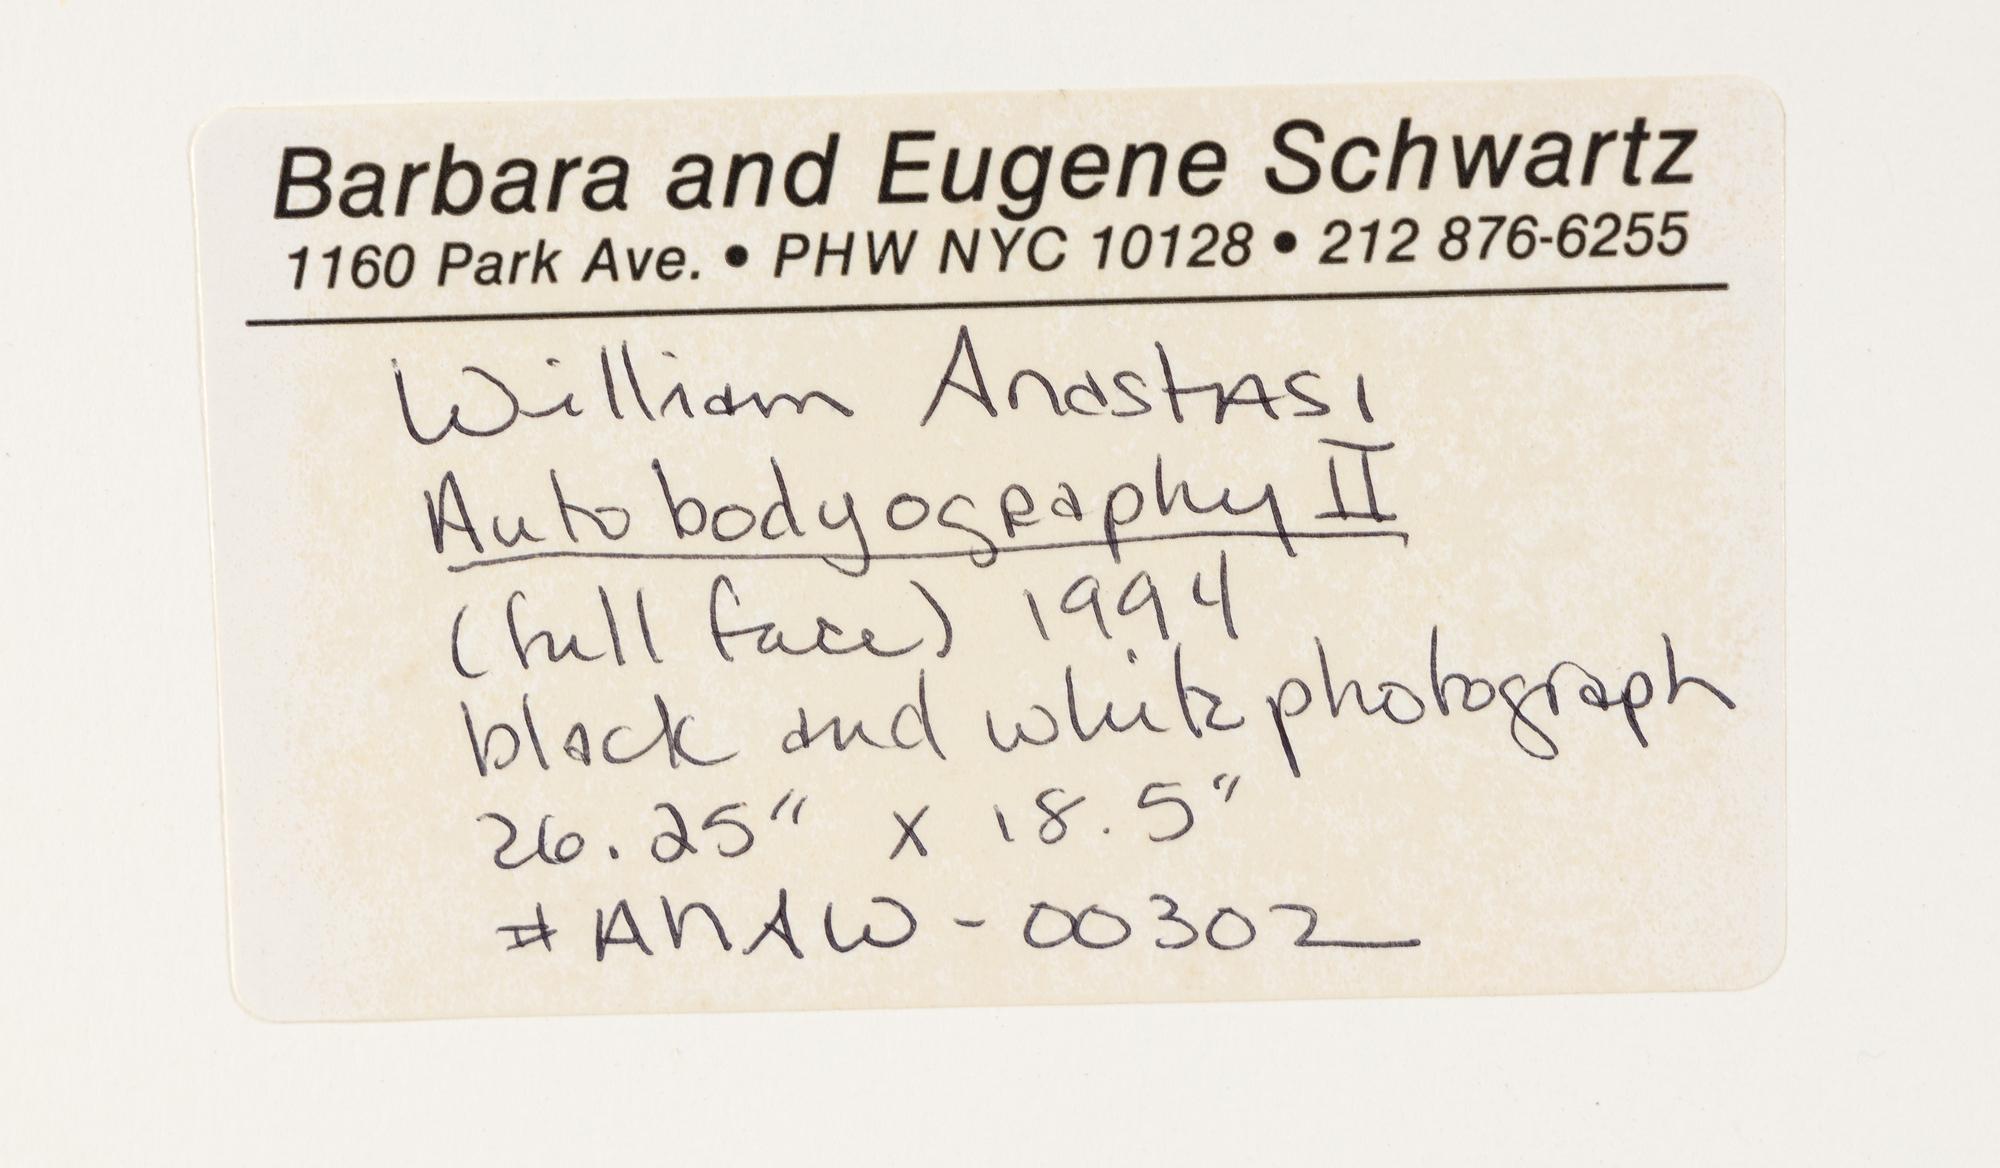 Barbara and Eugene Schwartz
1160 Park Ave. • PHW NYC 10128 • 212 876-6255
William Anastasi
Autobodyography II
(full face) 1994
black and white photograph
26.25" x 18.5"
#ANAW-00302